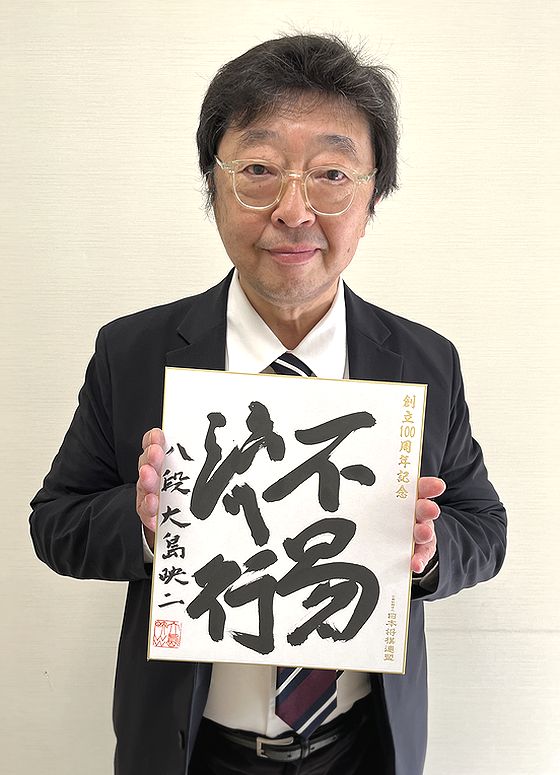 創立100周年記念
不易
流行
八段 大島映二
日本将棋連盟